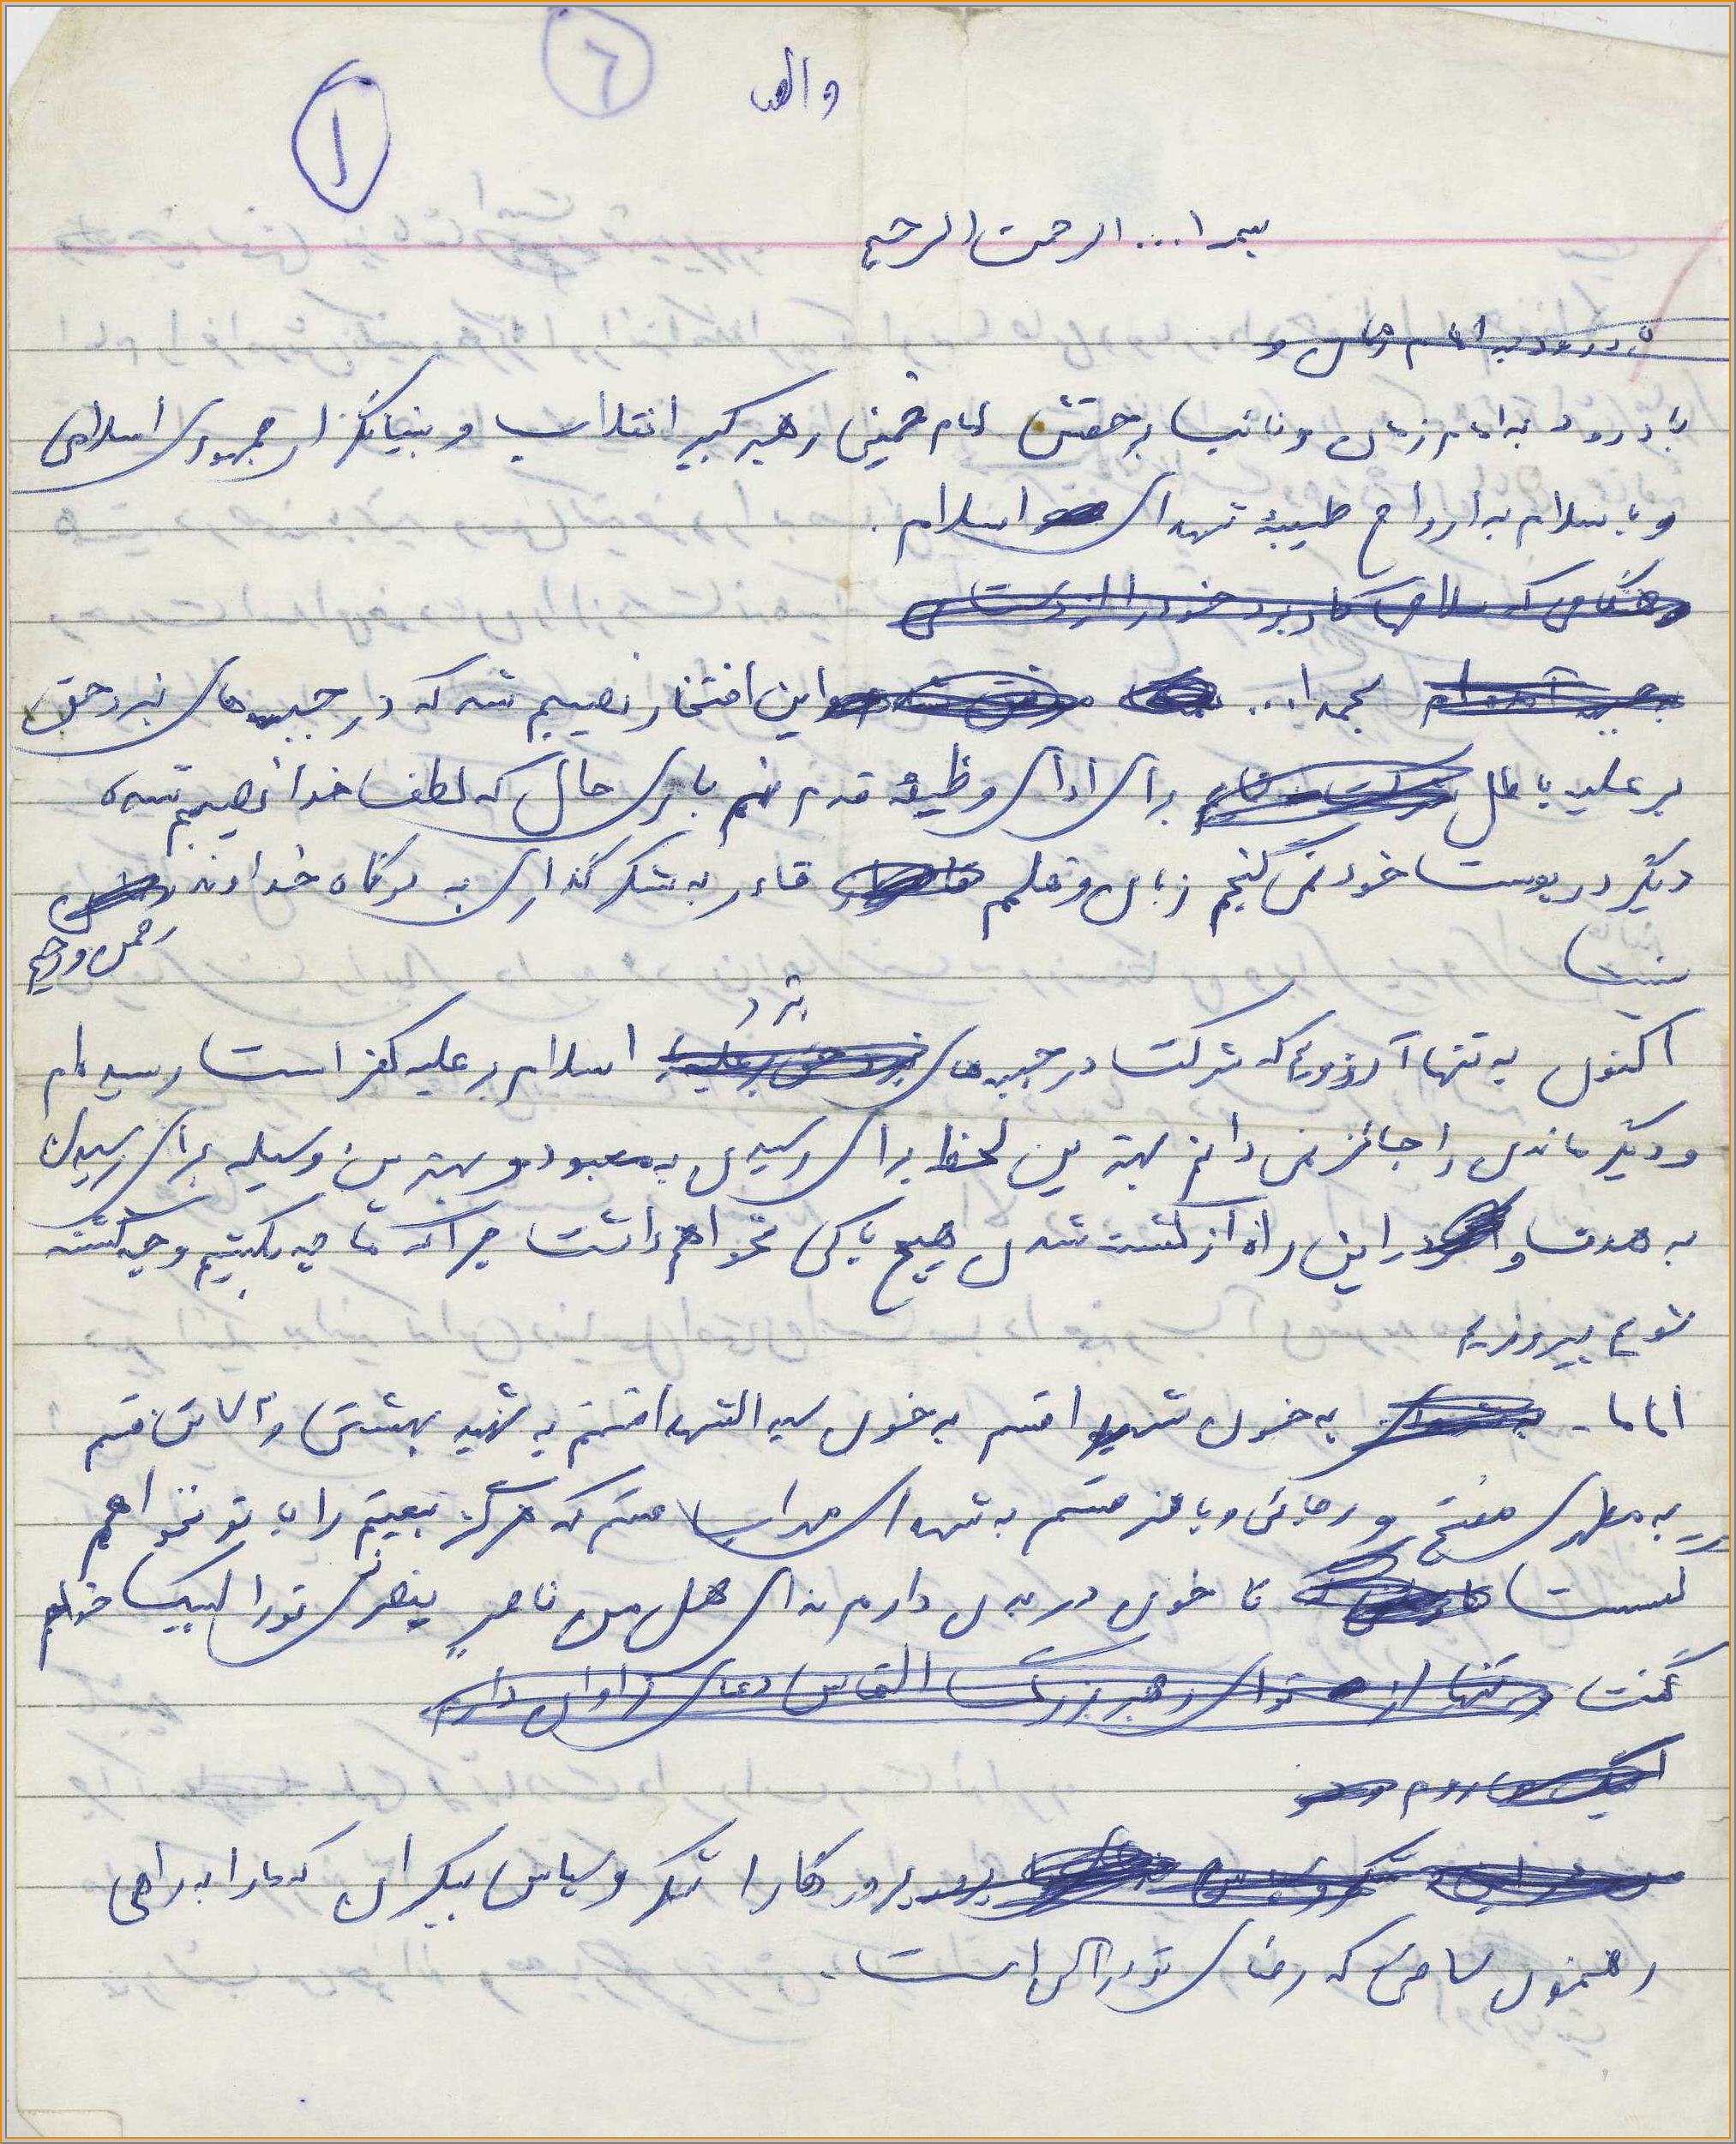 ۶
۱
بسم ا... الرحمن الرحیم
با درود به امام زمان و
با درود به امام زمان و نائب برحقش امام خمینی رهبر کبیر انقلاب و بنیانگزار جمهوری اسلامی
و با سلام به ارواح طیبهٔ شهدای اسلام .
بحمدا... این افتخار نصیبم شد که در جبهه های نبرد حق
بر علیه باطل برای ادای وظیفه قدم نهم باری حال که لطف خدا نصیبم شده
دیگر در پوست خود نمی گنجم زبان و قلمم قادر به شکر گذاری به درگاه خداوند
رحمن و رحیم
نیست
نبرد
اکنون به تنها آرزویم که شرکت در جبهه های اسلام بر علیه کفر است رسیده ام
و دیگر ماندن را جائز نمی دانم بهترین لحظه برای رسیدن به معبود و بهترین وسیله برای رسیدن
به هدف و در این راه از کشته شدن هیچ باکی نخواهم داشت چرا که ما چه بکشیم و چه کشته
شویم پیروزیم
اماما - به خون شهدا قسم به خون سید الشهدا قسم به شهید بهشتی و قسم
به مطهری مفتح و رجائی و باهنر قسم به شهدای محراب قسم که هرگز بیعتم را با تو نخواهم
گسست تا خون در بدن دارم ندای هل من ناصر ینصرنی تو را لبیک خواهم
گفت و تنها از تو ای رهبر بزرگ التماس دعای فراوان دارم
پروردگارا شکر و سپاس بیکران که ما را به راهی
رهنمون ساختی که رضای تو در آن است .